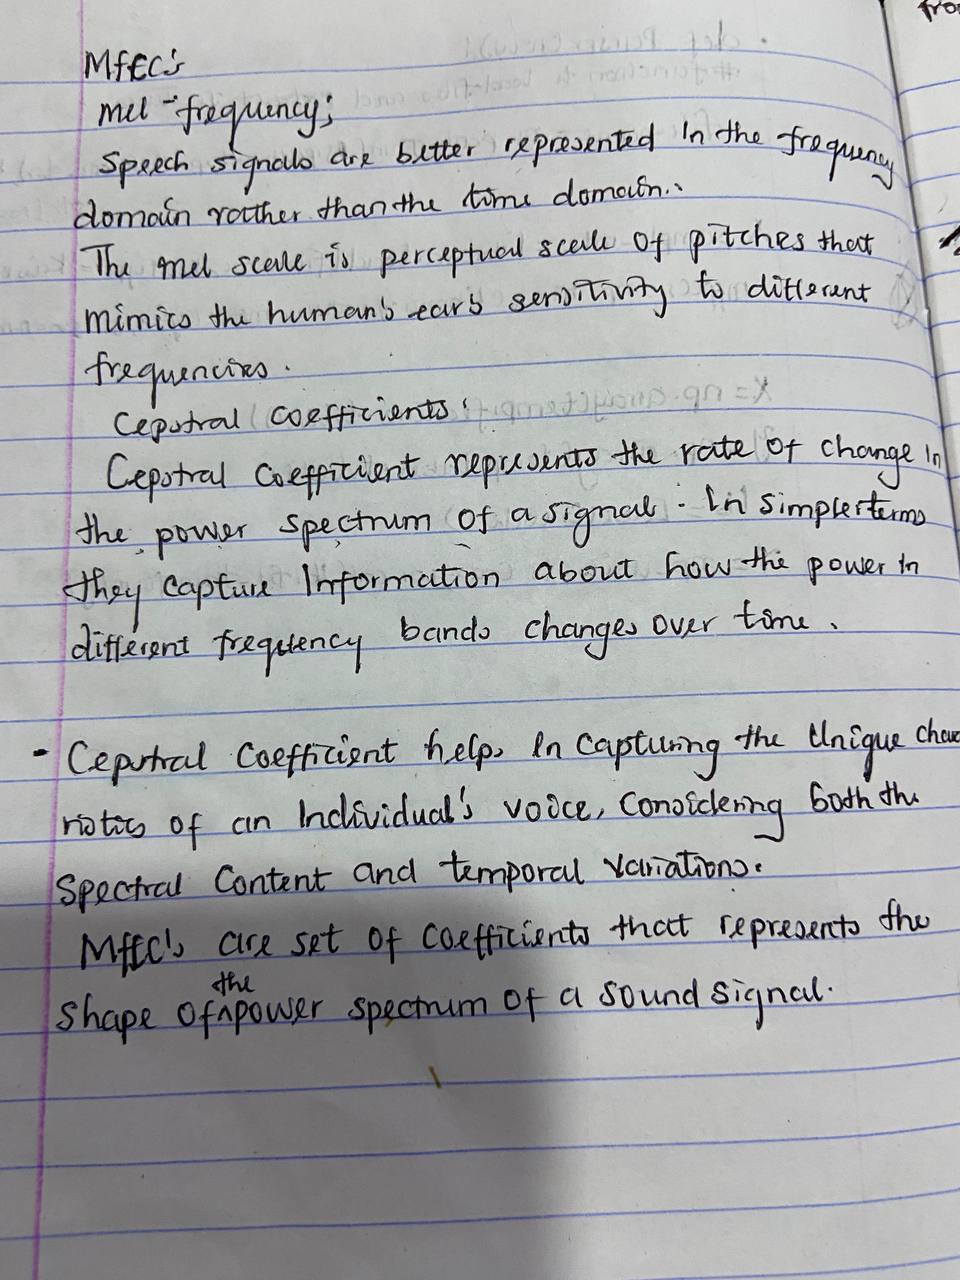 fro
MfCC's
mel-frequency;
Speech signals are better represented in the frequency
domain rather than the time domain.
The mel scale is perceptual scale of pitches that
mimics the human's ear's sensitivity to different
frequencies.
Cepstral coefficients:
Cepstral Coefficient represents the rate of change in
the power spectrum of a signal. In simpler terms
they capture Information about how the power in
different frequency bands changes over time.
- Cepstral Coefficient helps in capturing the Unique charac
ristics of an Individual's voice, Considering both the
Spectral Content and temporal variations.
MfCC's are set of Coefficients that represents the
shape of the power spectrum of a sound signal.